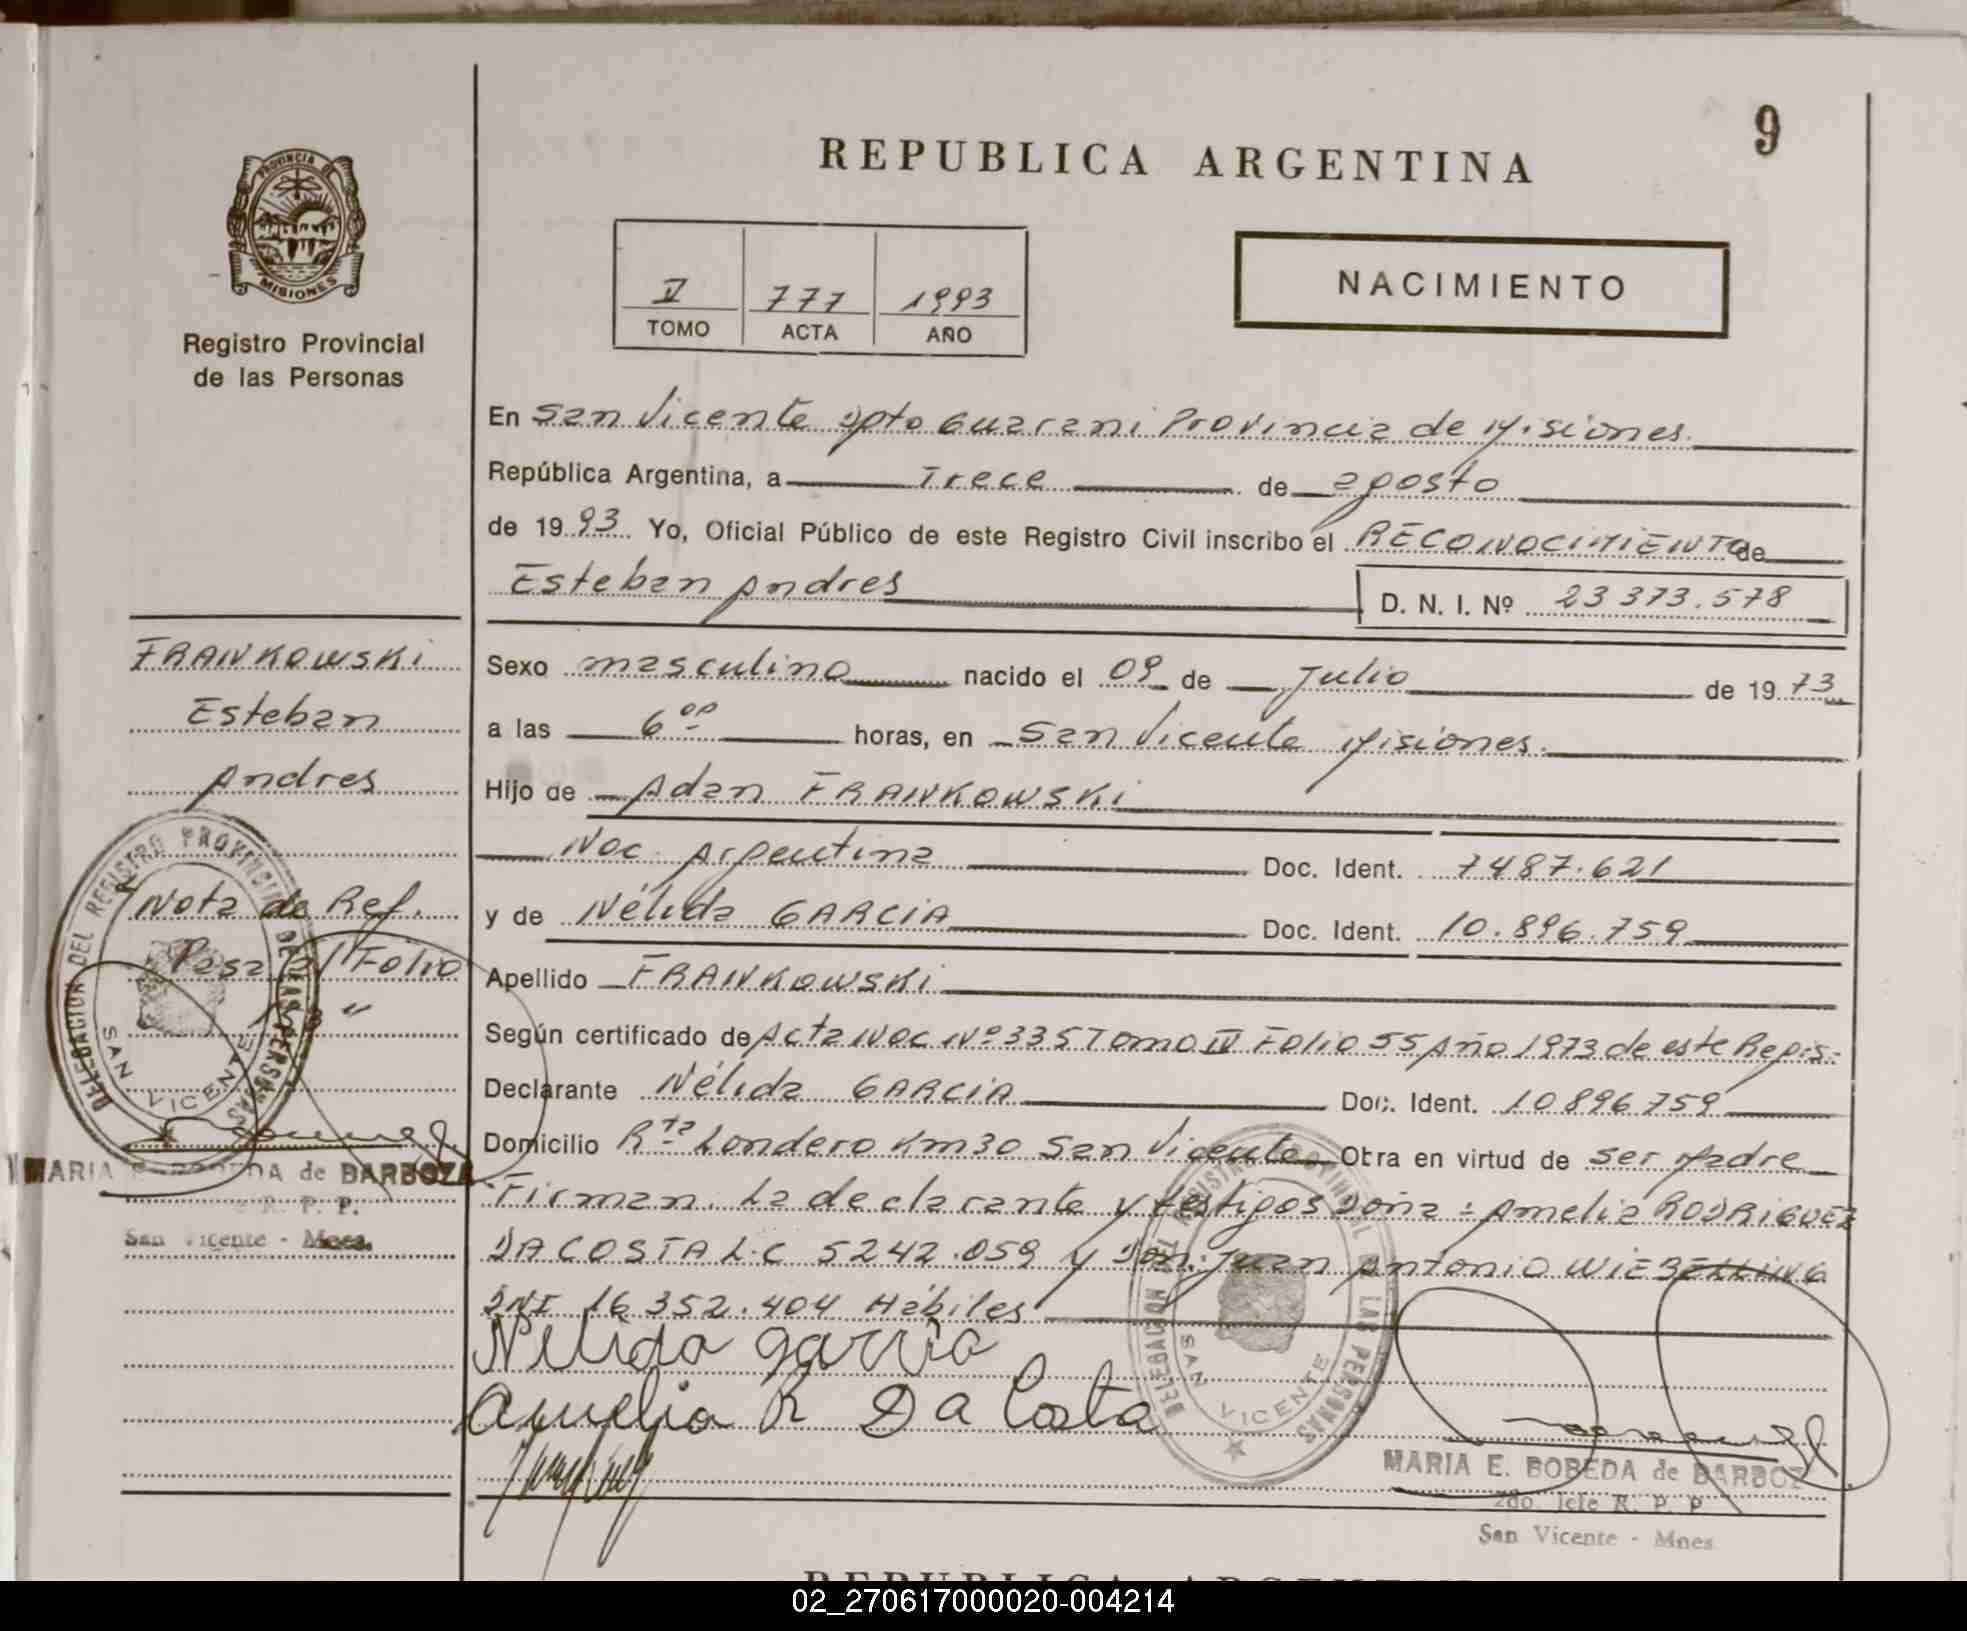 9
REPUBLICA ARGENTINA
PROVINCIA DE
MISIONES
Registro Provincial
de las Personas
V 777 1993
TOMO ACTA AÑO
NACIMIENTO
En San Vicente Dpto Guarani Provincia de Misiones.
República Argentina, a Trece de agosto
de 1993. Yo, Oficial Público de este Registro Civil inscribo el RECONOCIMIENTO de
Esteban Andres D. N. I. Nº 23 373.578
Sexo masculino nacido el 09 de Julio de 1973
a las 6 00 horas, en San Vicente Misiones.
Hijo de Adan FRANKOWSKi
Nac. Argentina Doc. Ident. 7487.621
y de Nélida GARCIA Doc. Ident. 10.896.759
Apellido FRANKOWSKi
Según certificado de Acta Nac Nº 335 Tomo IV Folio 55 Año 1973 de este Regis.
Declarante Nélida GARCIA Doc. Ident. 10896759
Domicilio Rta Londero Km30 San Vicente Obra en virtud de ser Madre
Firman. La declarante y testigos Doña: Amelia RODRIGUEZ
DA COSTA L.C 5242.059 y Don: Juan Antonio WIEBELLING
DNI 16 352.404 Hábiles
Nelida garcia
Amelia R Da Costa
FRANKOWSKi
Esteban
Andres
Nota de Ref.
Pasa al Folio
DELEGACION DEL REGISTRO PROVINCIAL DE LAS PERSONAS
SAN VICENTE
MARIA BOBEDA de BARBOZA
R. P. P.
San Vicente - Mnes.
DELEGACION DEL REGISTRO PROVINCIAL DE LAS PERSONAS
SAN VICENTE
MARIA E. BOBEDA de BARBOZ
2do. Jefe R. P. P
San Vicente - Mnes
REPUBLICA ARGENTINA
02_270617000020-004214